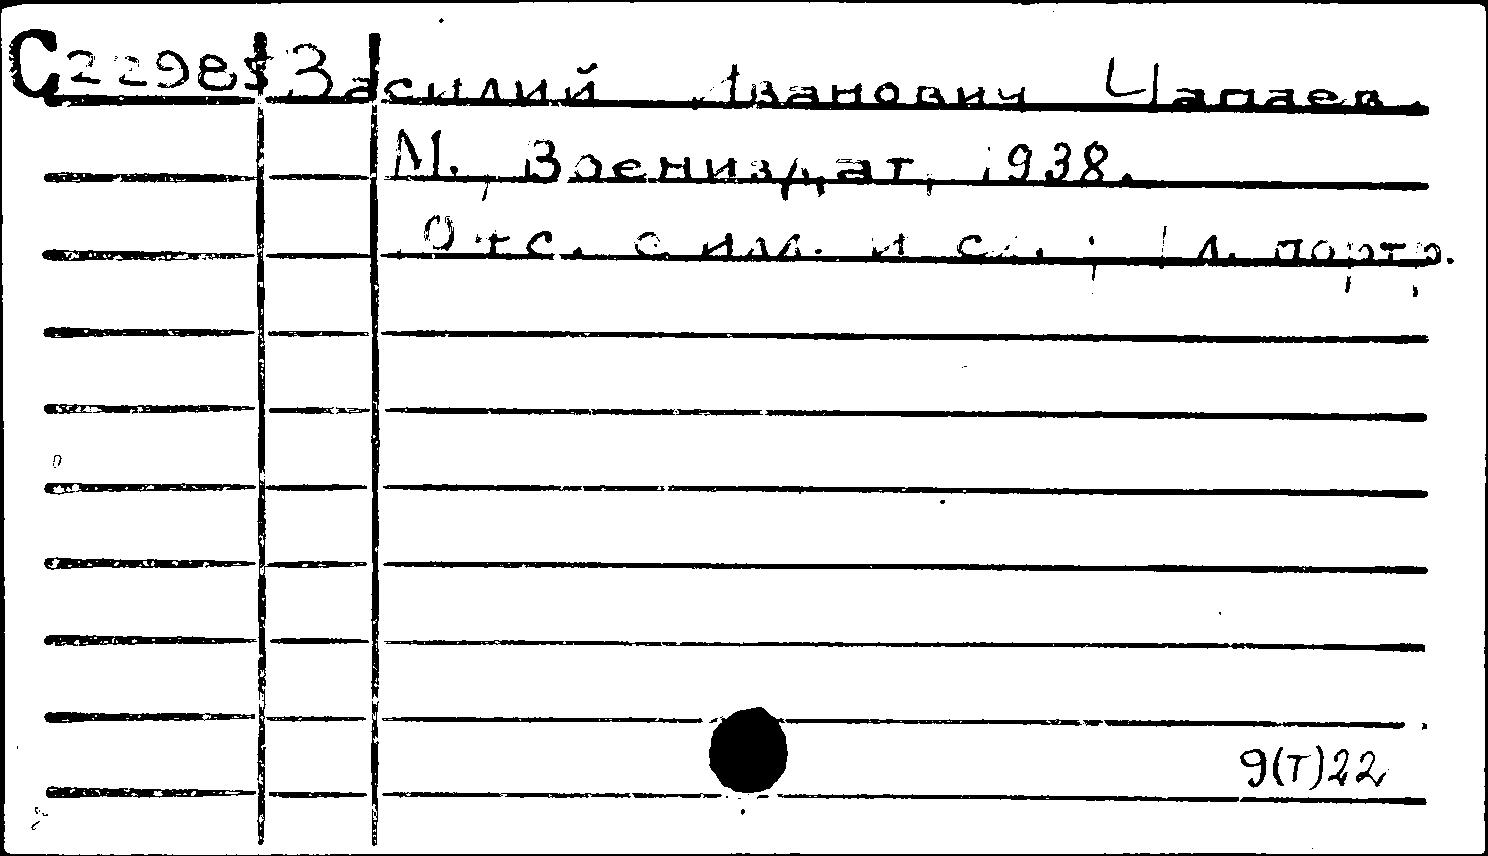 С22985 Василий Иванович Чапаев.
М., Воениздат, 1938.
с илл. и сх.; 1 л. портр.
9(Т)22